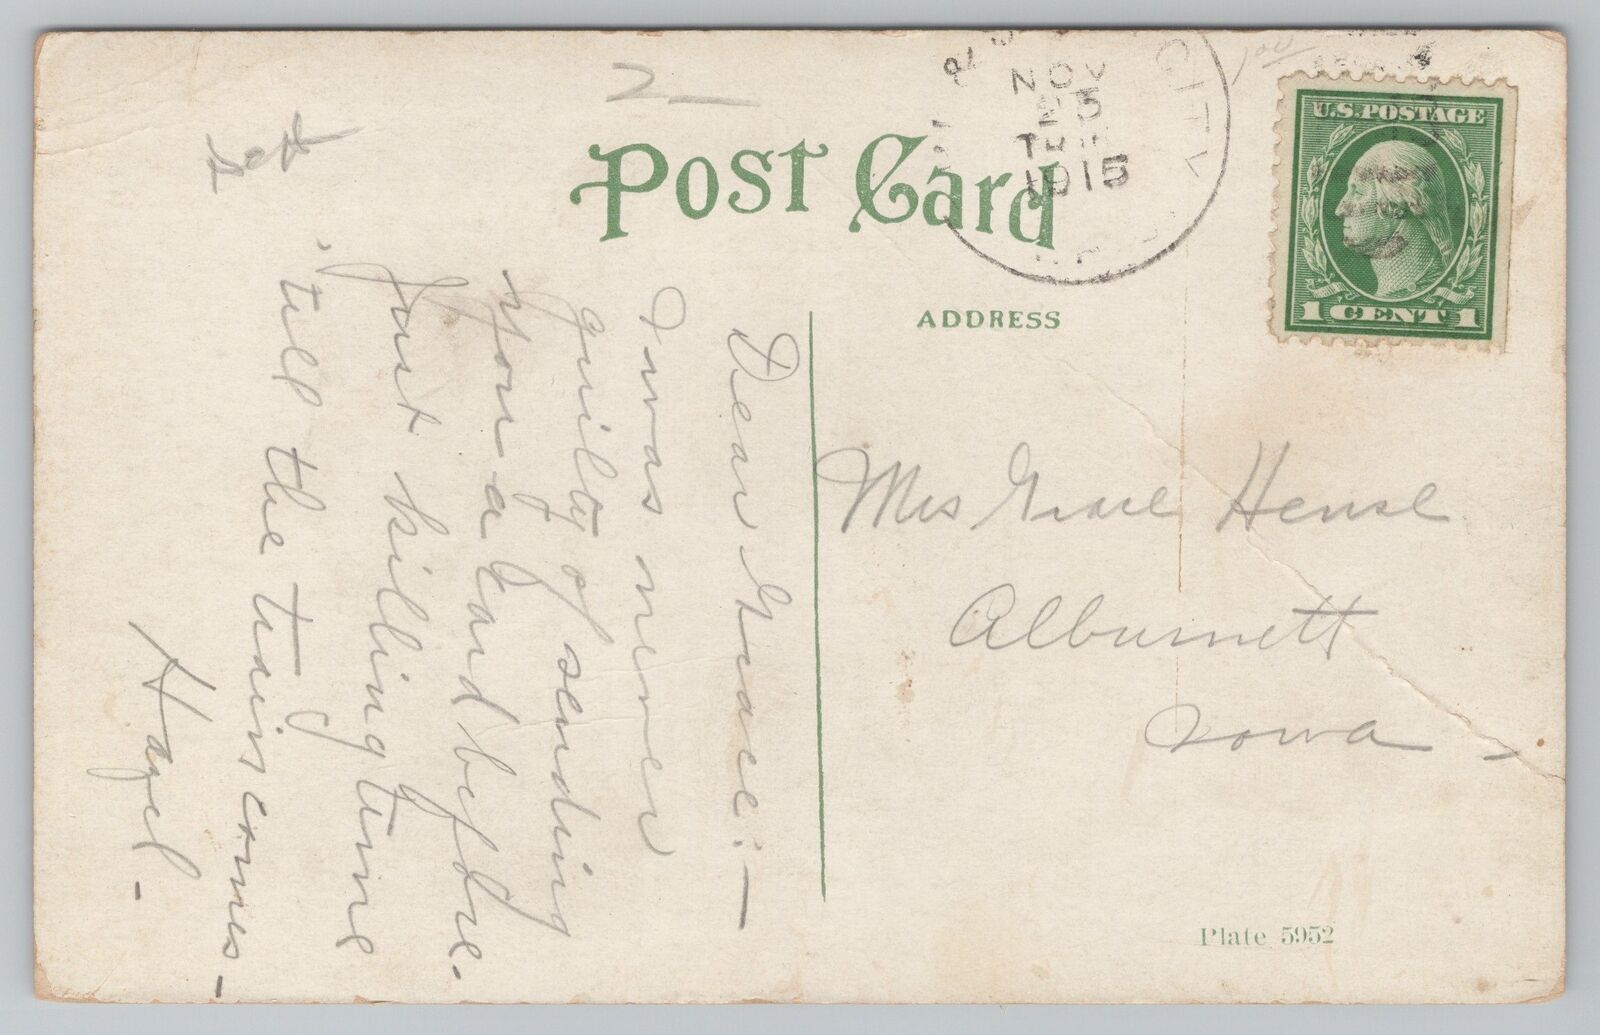 2
POST CARD
NOV
23
1915
CITY
U.S.POSTAGE
1 CENT 1
ADDRESS
Dear Grace:—
I was never
guilty of sending
you a card before.
Just killing time
'till the train comes—
Hazel—
Mrs Grace Hensel
Alburnett
Iowa
Plate 5952